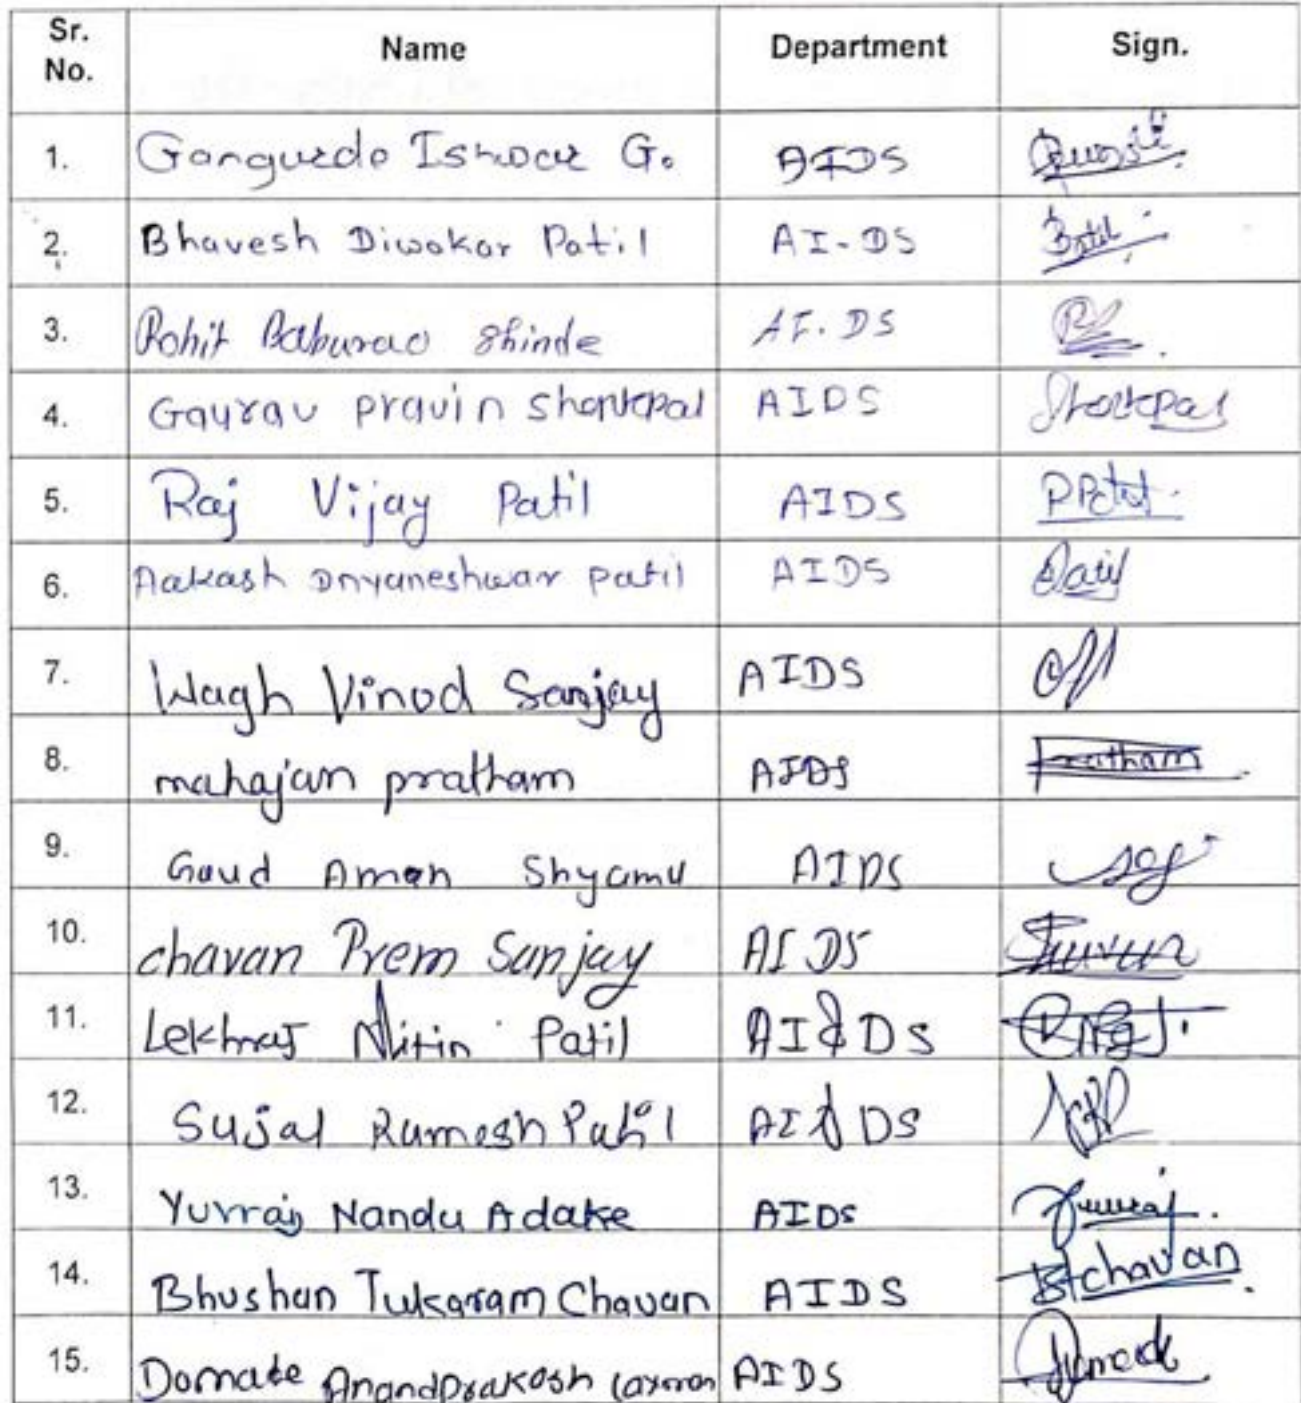 Sr. No. Name Department Sign.
1. Gangurde Ishwar G. AIDS
2. Bhavesh Diwakar Patil AI-DS Patil
3. Rohit Baburao Shinde AI.DS
4. Gaurav pravin shontepal AIDS
5. Raj Vijay Patil AIDS RPatil
6. Aakash Dnyaneshwar patil AIDS Patil
7. Wagh Vinod Sanjay AIDS
8. mahajan pratham AIDS Pratham
9. Gaud Aman Shyamu AIDS
10. chavan Prem Sanjay AIDS
11. Lekhraj Nitin Patil AI&DS
12. Sujal Ramesh Patil AI&DS
13. Yuvraj Nandu Adake AIDS Yuvraj
14. Bhushan Tukaram Chavan AIDS Btchavan
15. Domate Anandprakash AIDS